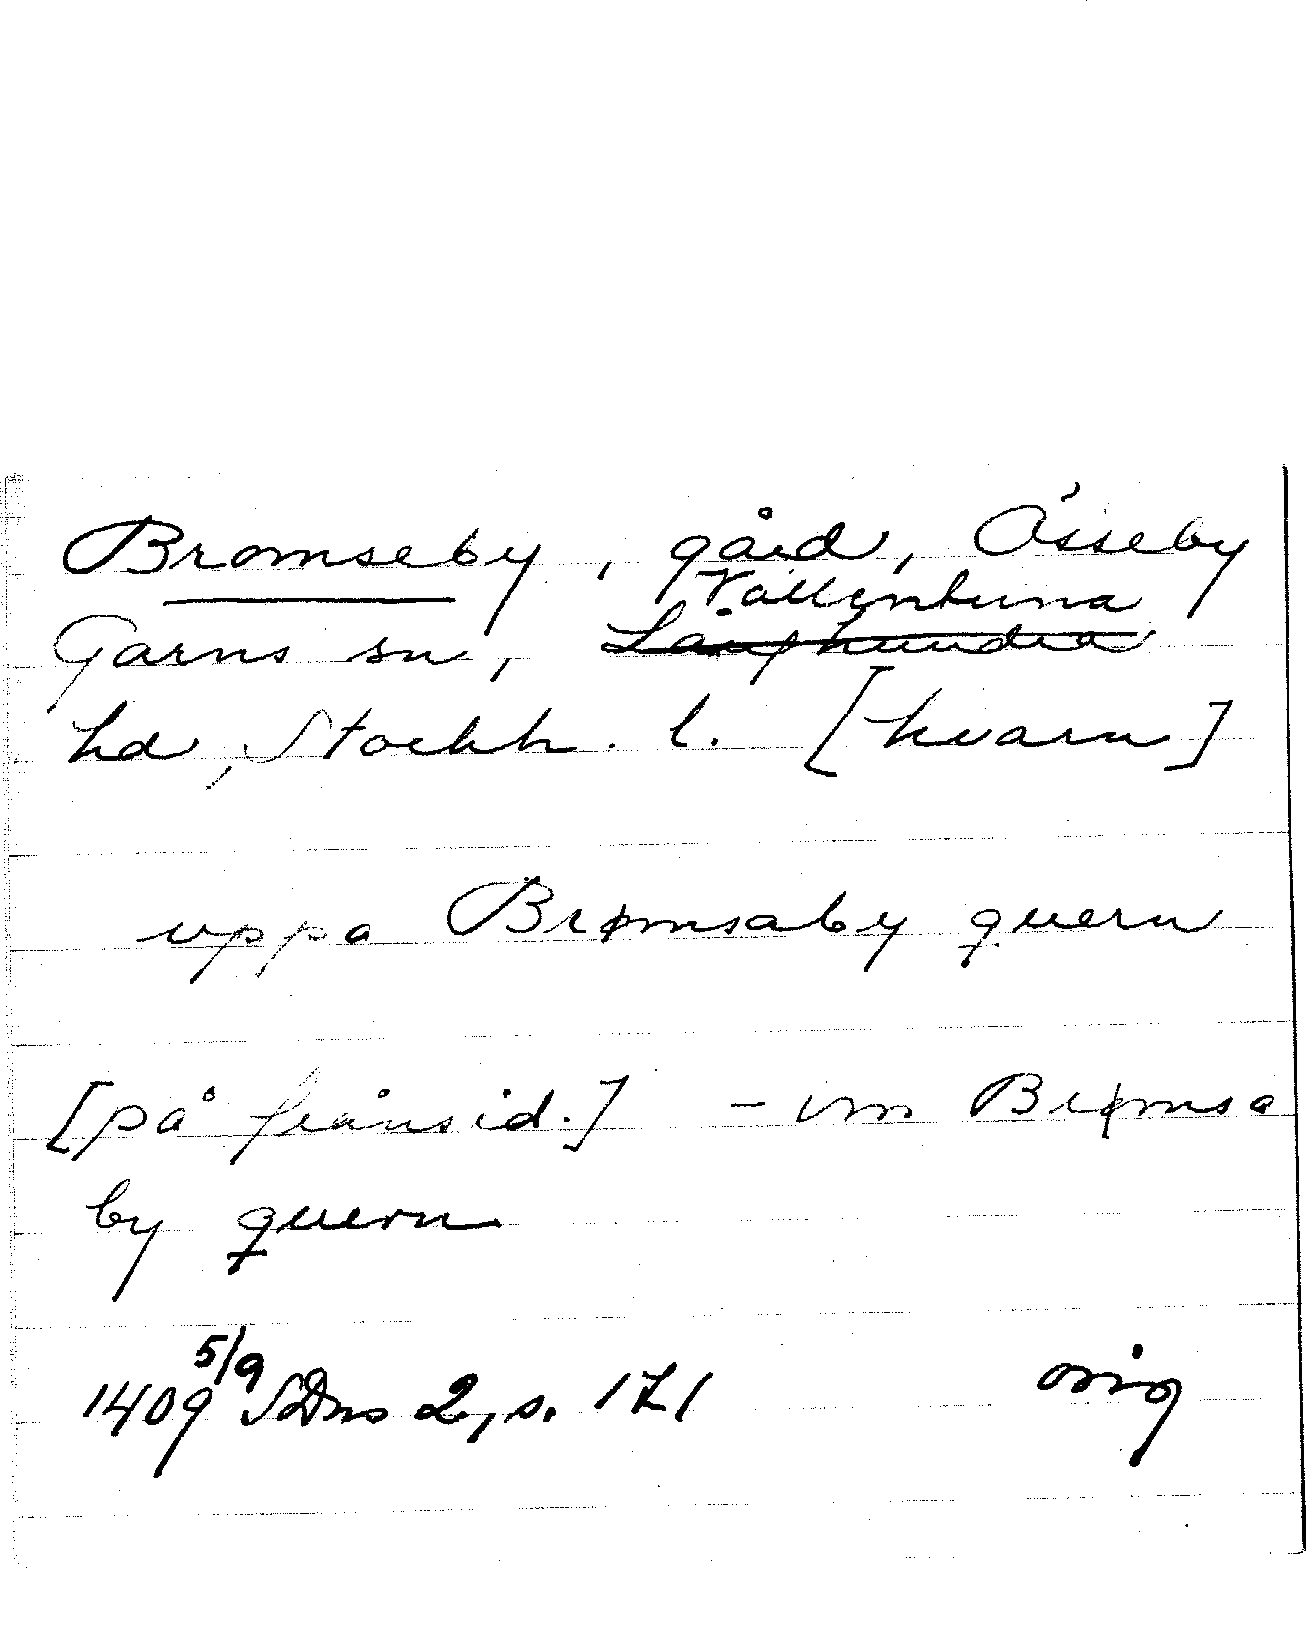 Bromseby, gård, Össeby
Vallentuna
Garns sn, Långhundra
hd, Stockh. l. [kvarn]
uppa Brømsaby quern
[på frånsid.] - um Brømsa
by quern
1409 5/9 SDns 2, s. 171 orig